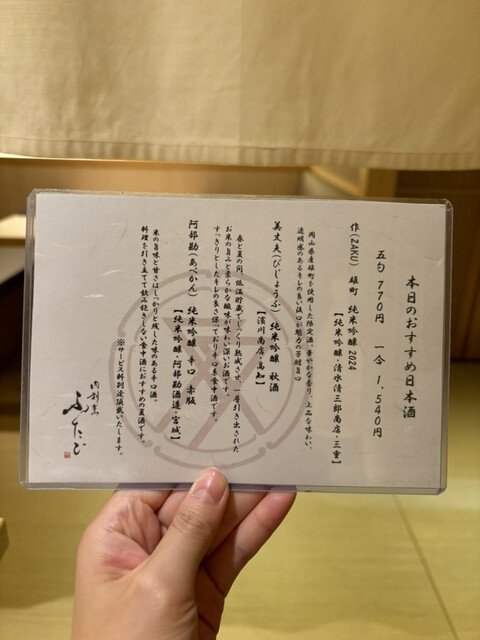 本日のおすすめ日本酒
五勺 770円 一合 1,540円
作(ZAKU) 雄町 純米吟醸 2024
【純米吟醸・清水清三郎商店・三重】
岡山県産雄町を使用した限定酒。華やかな香り、上品な味わい、
透明感のあるキレの良い後口が魅力の芳醇旨口
美丈夫(びじょうふ) 純米吟醸 秋酒
【純米吟醸・濱川商店・高知】
春と夏の間、低温貯蔵でじっくり熟成させ、一層引き出された
お米の旨みと柔らかな酸味が味わい深いお酒です。
すっきりとしたキレの良さ保っており辛口系食中酒です。
阿部勘(あべかん) 純米吟醸 辛口 赤版
【純米吟醸・阿部勘酒造・宮城】
米の旨味と甘さはしっかりと残した味のある辛口酒。
料理を引き立てて飲み飽きしない食中酒におすすめの夏酒です。
※サービス料別途頂戴いたします。
肉割烹
ふたご